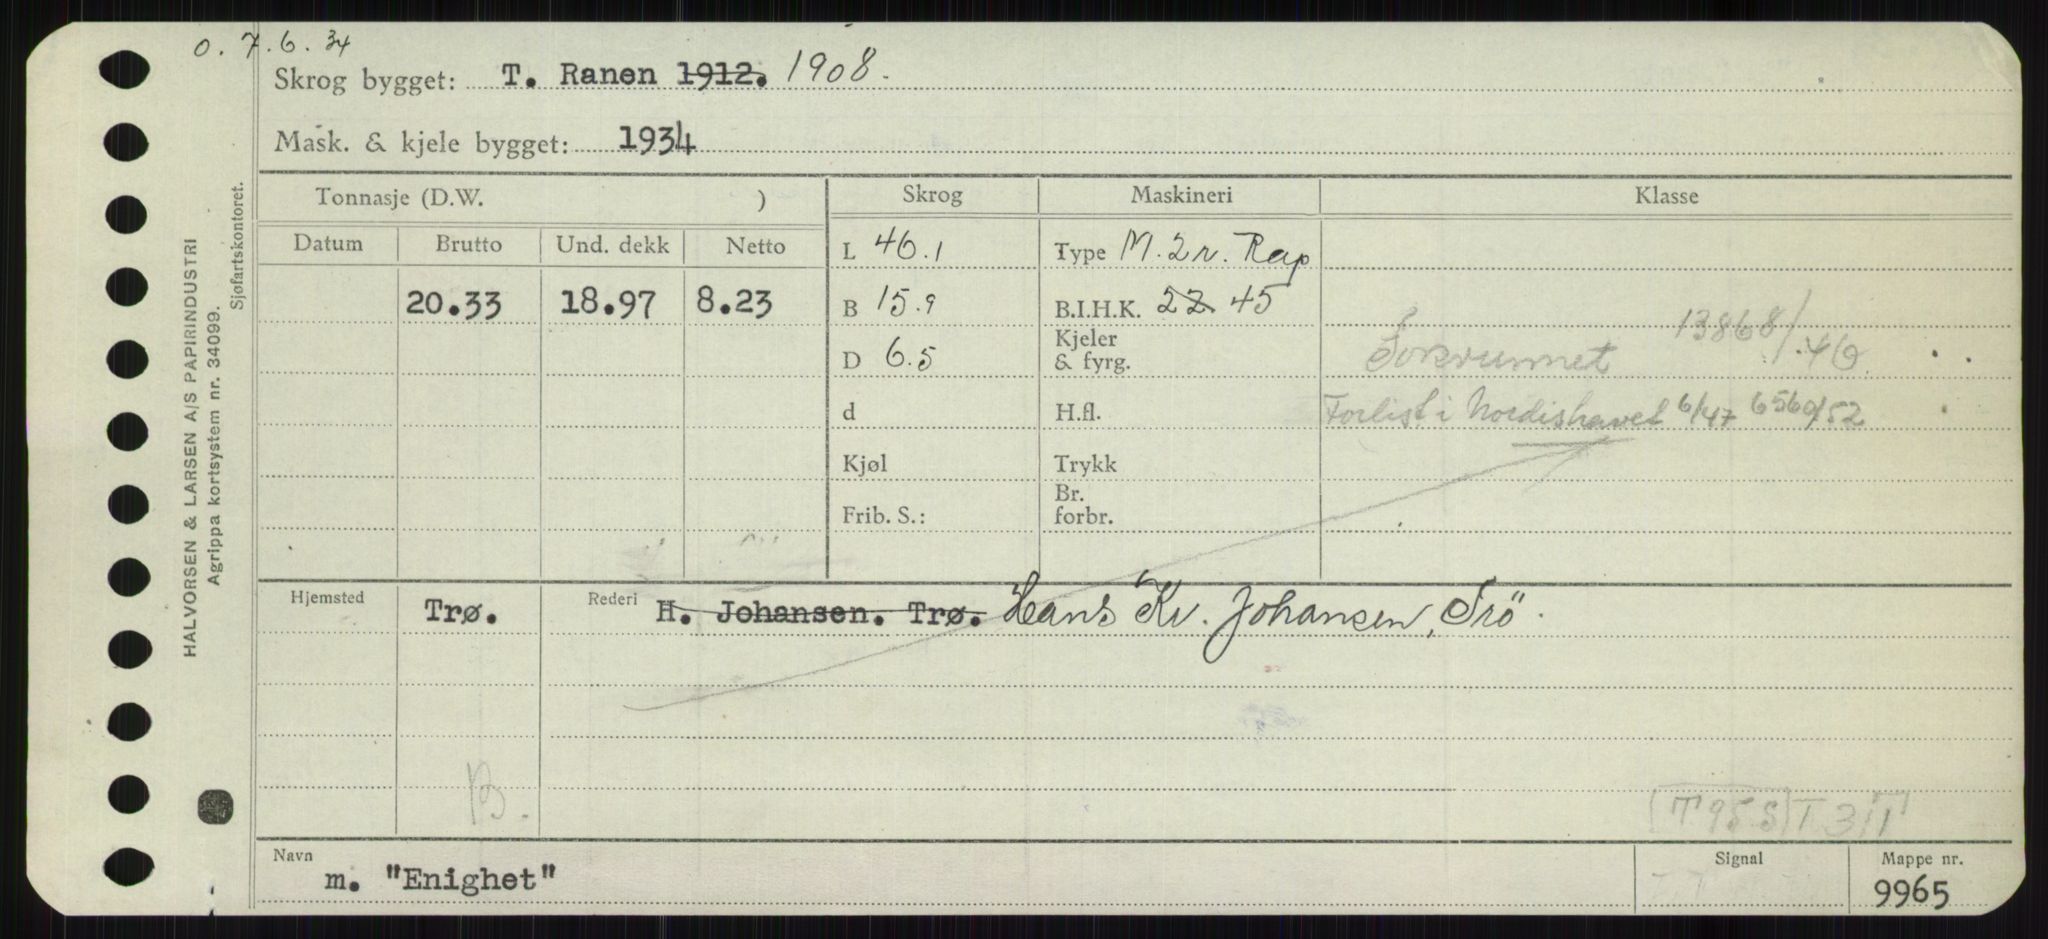 o. 7.6.34
Skrog bygget: T. Ranen 1912. 1908.
Mask. & kjele bygget: 1934
Tonnasje (D.W. ) Skrog Maskineri Klasse
Datum Brutto Und. dekk Netto L 46.1 Type M. 2 r. Rap
20.33 18.97 8.23 B 15.9 B.I.H.K. 22 45
13868/.40
D 6.5 Kjeler & fyrg. Forsvunnet
d H.fl. Forlist i Nordishavet 6/47 6560/52
Kjøl Trykk
Frib. S.: Br. forbr.
Hjemsted Trø. Rederi H. Johansen. Trø. Hans Kv. Johansen, Trö.
B.
T 95 S T 3 T
Navn Signal Mappe nr.
m. "Enighet" 9965
HALVORSEN & LARSEN A/S PAPIRINDUSTRI
Agrippa kortsystem nr. 34099.
Sjøfartskontoret.